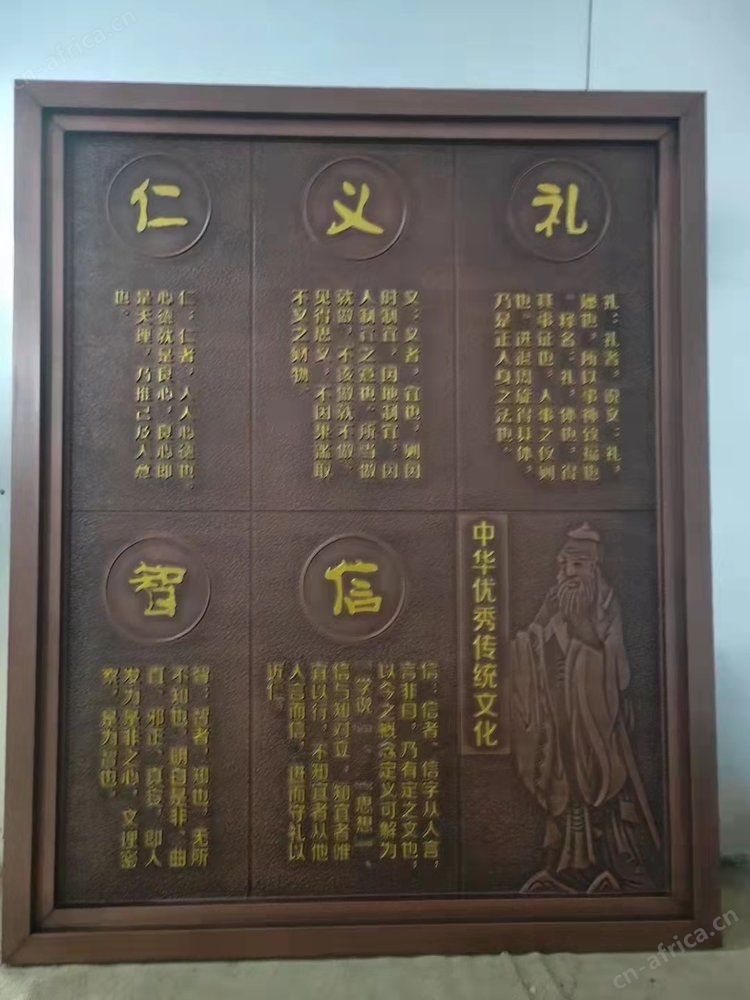 仁
仁：仁者，人人心德也。
心德就是良心，良心即
是天理，乃推己及人意
也。
义
义：义者，宜也，则因
时制宜，因地制宜，因
人制宜之意也。所当做
就做，不该做就不做。
见得思义，不因果滥取
不义之财物。
礼
礼：礼者，说文：礼，
履也，所以事神致福也
。释名：礼，体也，得
其事证也，人事之仪则
也。进退周旋得其体，
乃是正人身之法也。
智
智：智者，知也，无所
不知也。明白是非、曲
直、邪正、真妄，即人
发为是非之心，文理密
察，是为智也。
信
信：信者，信字从人言，
言非自，乃有定之文也，
以今之概念定义可解为
“学说”、“思想”、
信与知对立，知宜者唯
宜以行，不知宜者从他
人言而信，进而守礼以
近仁。
中华优秀传统文化
cn-africa.cn
cn-africa.cn